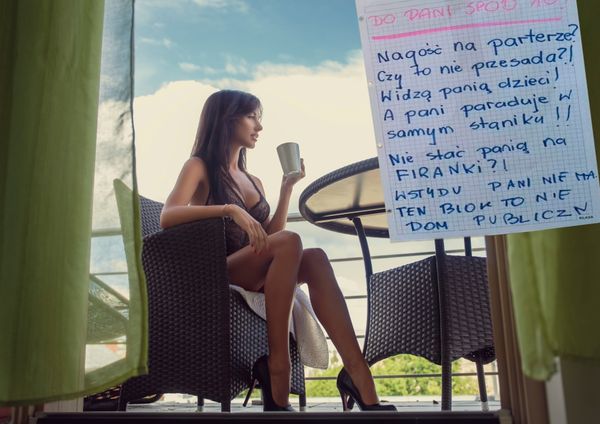 DO PANI SPOD 10
Nagość na parterze?
Czy to nie przesada?!
Widzą panią dzieci!
A pani paraduje w
samym staniku!!
Nie stać panią na
FIRANKI?!
WSTYDU PANI NIE MA.
TEN BLOK TO NIE
DOM PUBLICZNY